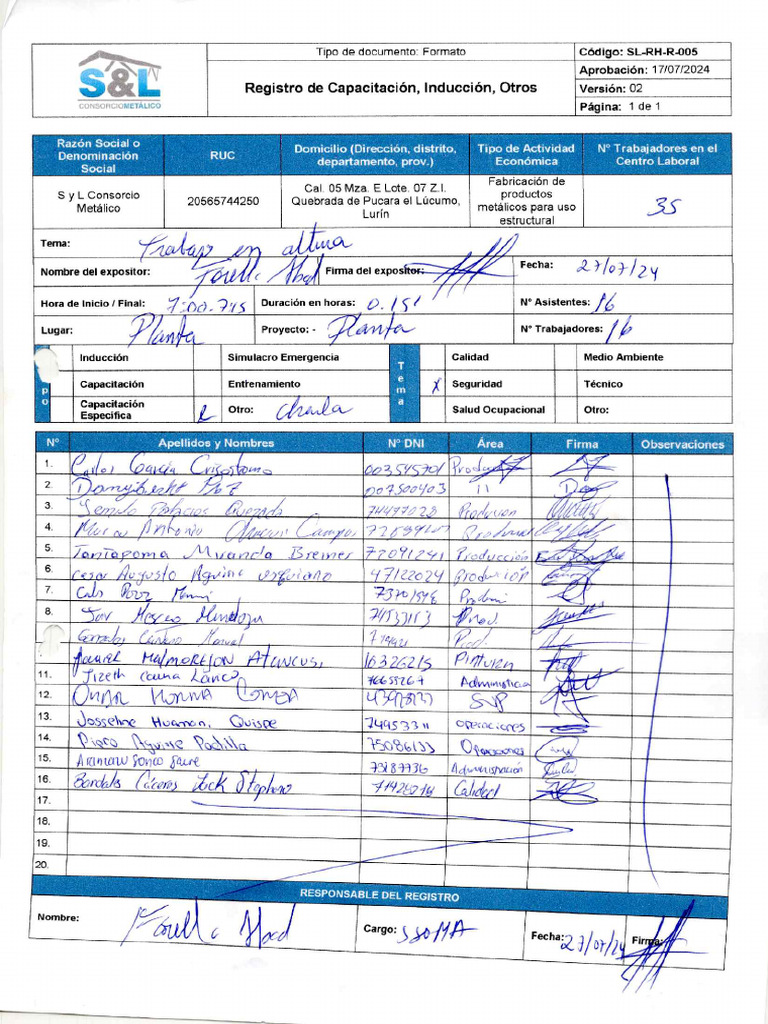 S&L
CONSORCIO METÁLICO
Tipo de documento: Formato
Registro de Capacitación, Inducción, Otros
Código: SL-RH-R-005
Aprobación: 17/07/2024
Versión: 02
Página: 1 de 1
Razón Social o Denominación Social
RUC
Domicilio (Dirección, distrito, departamento, prov.)
Tipo de Actividad Económica
N° Trabajadores en el Centro Laboral
S y L Consorcio Metálico
20565744250
Cal. 05 Mza. E Lote. 07 Z.I. Quebrada de Pucara el Lúcumo, Lurín
Fabricación de productos metálicos para uso estructural
35
Tema: Trabajo en altura
Nombre del expositor: Fiorella Abad Firma del expositor: Fecha: 27/07/24
Hora de Inicio / Final: 7:00-7:15 Duración en horas: 0.15' N° Asistentes: 16
Lugar: Planta Proyecto: - Planta N° Trabajadores: 16
po
Tema
Inducción Simulacro Emergencia Calidad Medio Ambiente
Capacitación Entrenamiento x Seguridad Técnico
Capacitación Específica Otro: Charla Salud Ocupacional Otro:
N° Apellidos y Nombres N° DNI Área Firma Observaciones
1. Carlos García Crisostomo 003545701
2. 007500403 11
3. Palacios Quezada 74497028 Produccion
4. Marco Antonio Campos
5. Tantapoma Miranda Breiner 72091241 Producción
6. Cesar Augusto Aguirre 47122024 Producción
7.
8. Mendoza
Manuel
Malmorejon Atancus, 16326215 Pintura
11. Lizeth Cauna Lanco 76655267 Administracia
12. Omar
13. Josseline Huaman, Quispe 74953311 operaciones
14. Piero Aguirre Padilla 75086133 Operaciones
15. 73187736 Administración
16. Bardales Cáceres Jack Stephano 71428018 Calidad
17.
18.
19.
20.
RESPONSABLE DEL REGISTRO
Nombre: Fiorella Abad Cargo: SSOMA Fecha: 27/07/24 Firma: